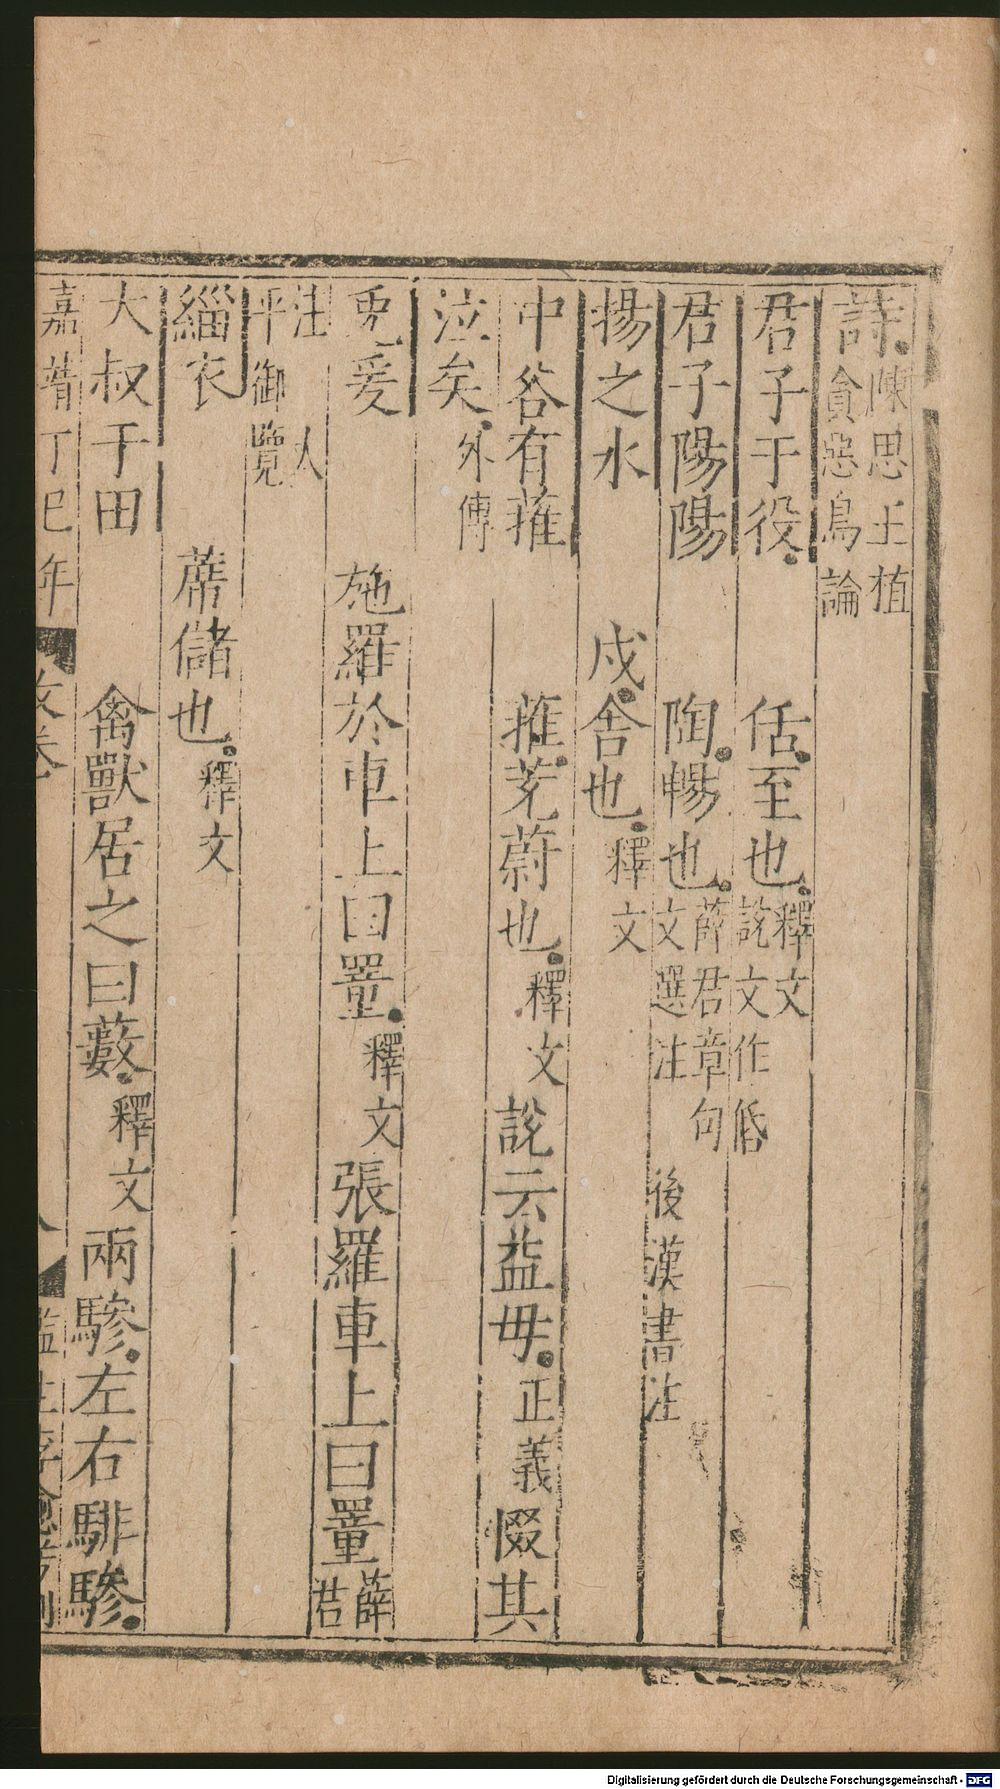 詩陳思王植貪惡鳥論
君子于役　佸至也釋文說文作㑻
君子陽陽　陶暢也薛君章句文選注　後漢書注
揚之水　戍舍也釋文
中谷有蓷　蓷茺蔚也釋文說云益毋正義惙其
泣矣外傳
兎爰　施羅於車上曰罿釋文張羅車上曰罿薛君
注　人平御覽
緇衣　蓆儲也釋文
大叔于田　禽獸居之曰藪釋文兩驂左右騑驂
嘉靖丁巳年
Digitalisierung gefördert durch die Deutsche Forschungsgemeinschaft - DFG